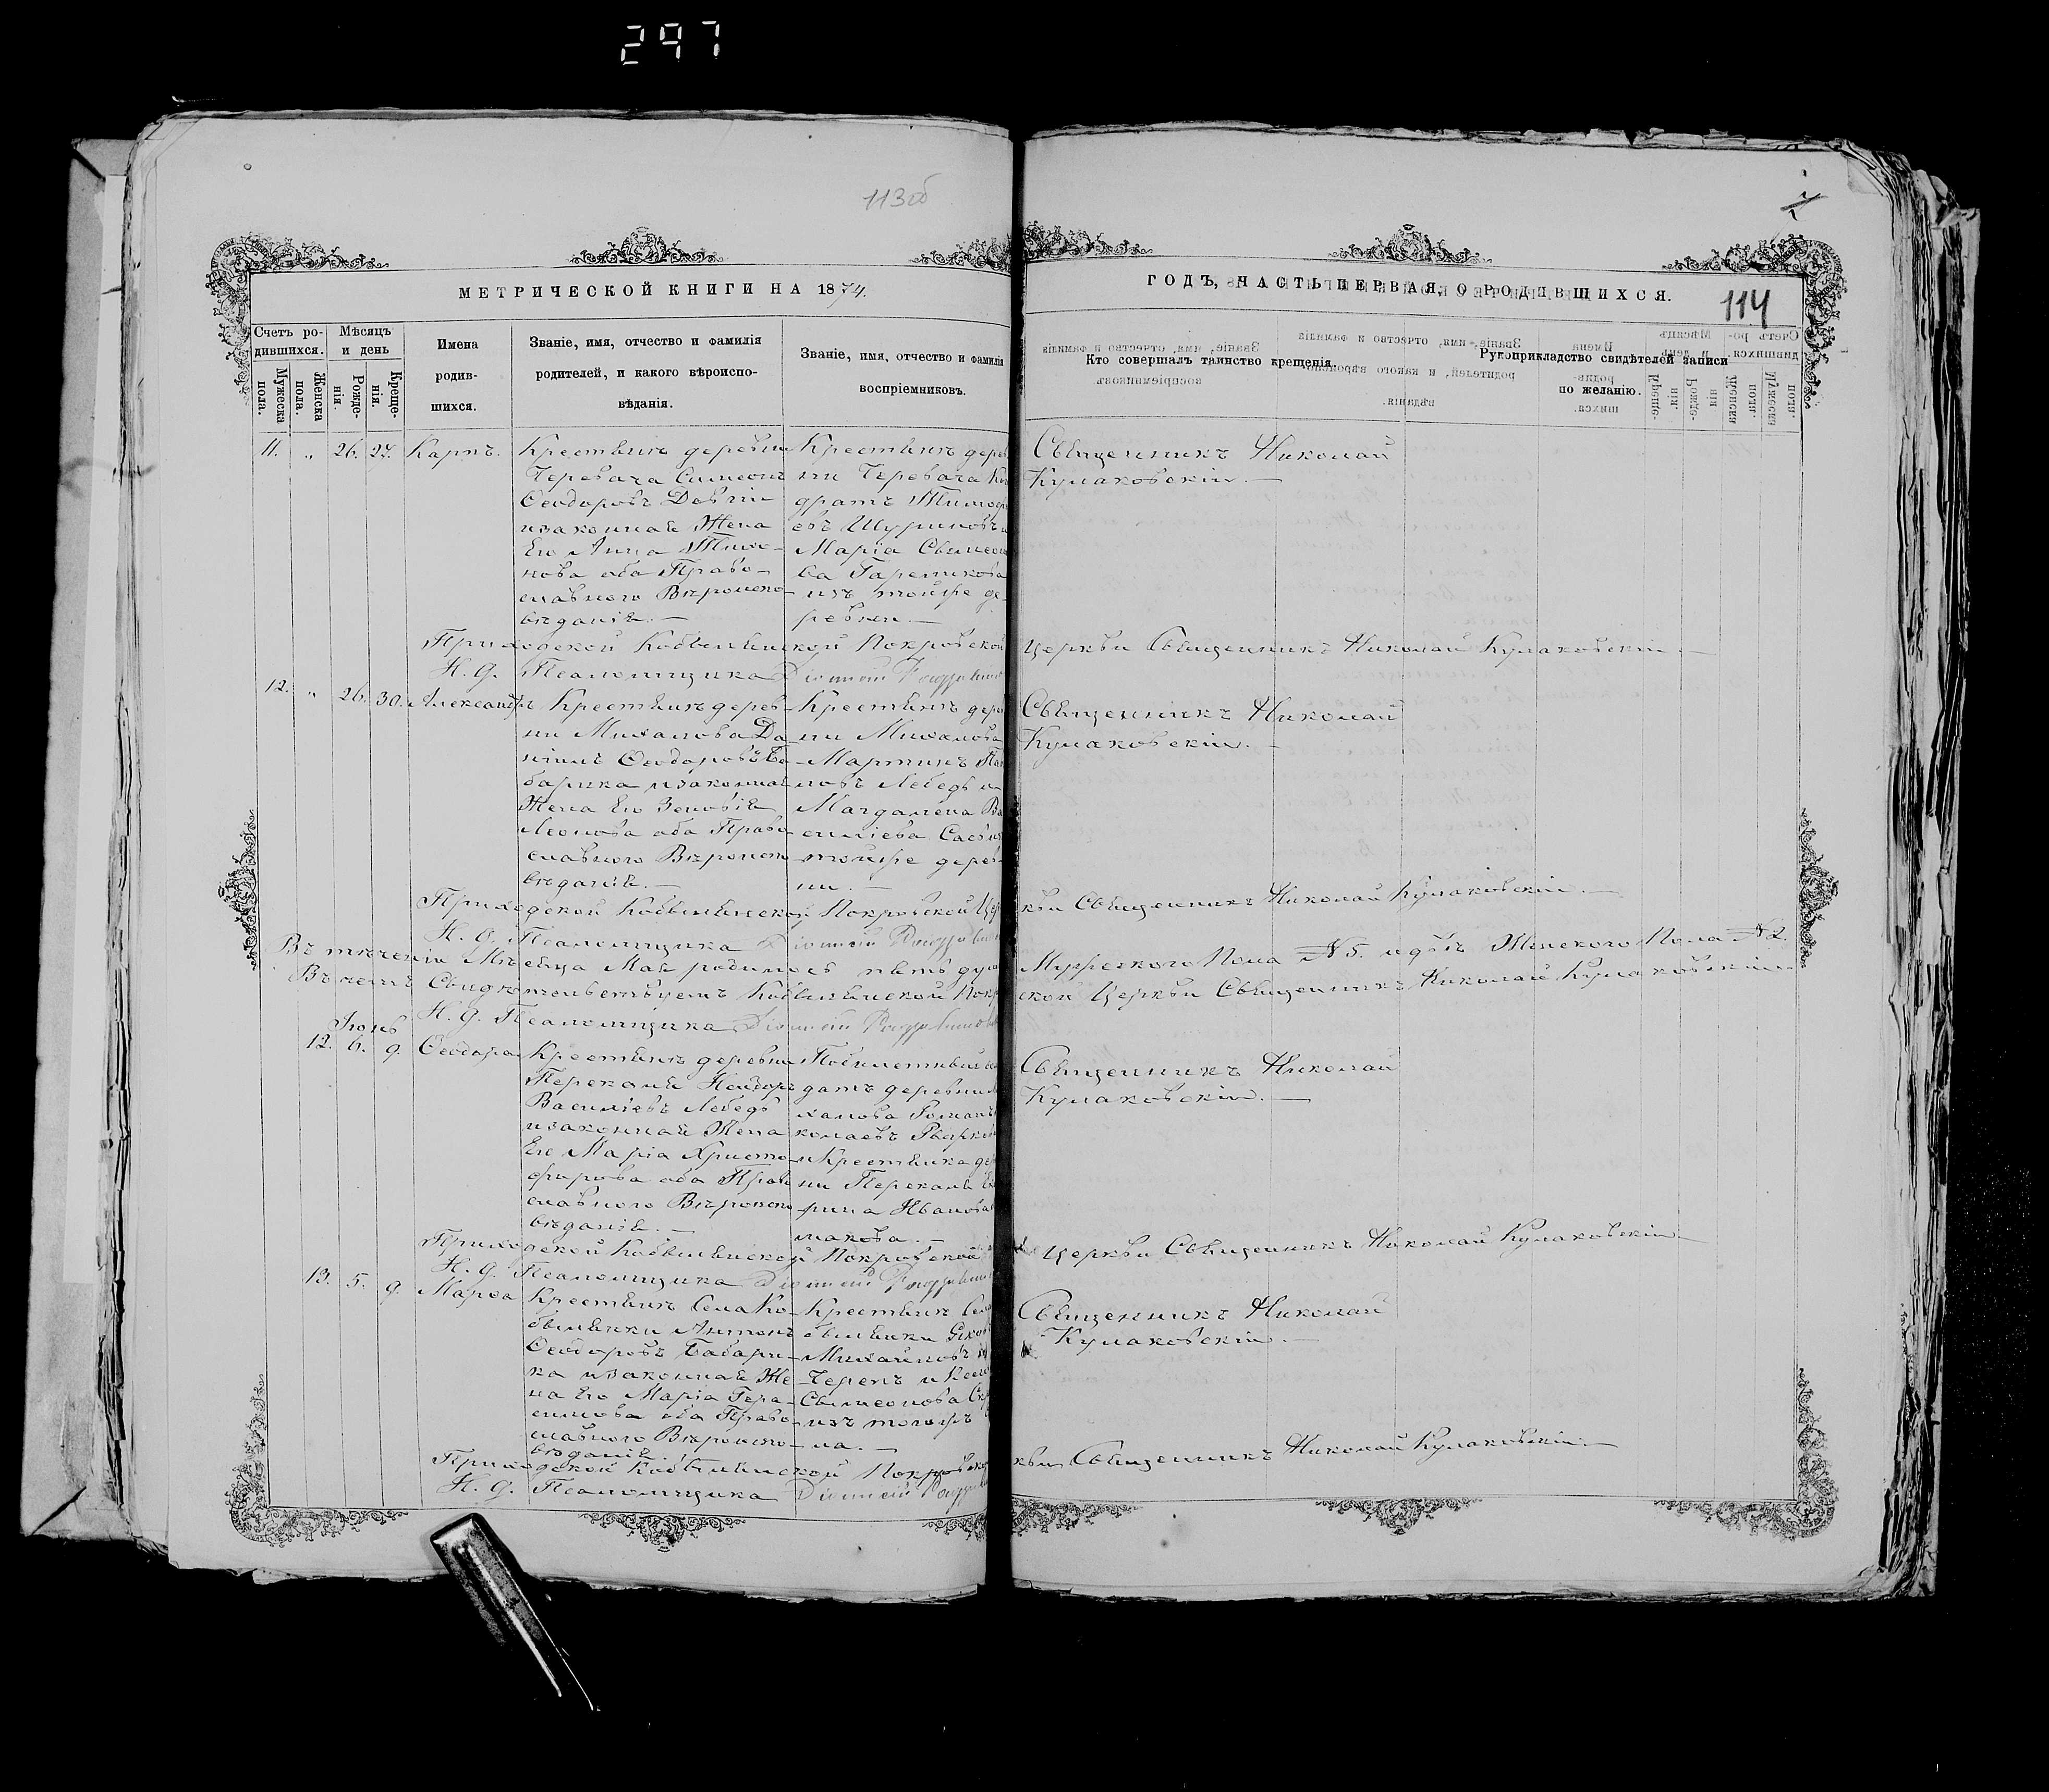 297
113об
МЕТРИЧЕСКОЙ КНИГИ НА 1874.
ГОДЪ, ЧАСТЬ ПЕРВАЯ, О РОДИВШИХСЯ.
114
Счетъ ро-
дившихся.
Мужеска пола.
Женска пола.
Мѣсяцъ
и день
Рожде-
нія.
Креще-
нія.
Имена
родив-
шихся.
Званіе, имя, отчество и фамилія
родителей, и какого вѣроиспо-
вѣданія.
Званіе, имя, отчество и фамилія
воспріемниковъ.
Кто совершалъ таинство крещенія.
Рукоприкладство свидѣтелей записи
по желанію.
11. " 26. 27. Карпъ.
Крестьянъ деревни
Черевача Симеонъ
Ѳеодоровъ
изаконная Жена
Его Анна Тимо-
нова оба Право-
славного Вѣроиспо-
вѣданія. —
Крестьянъ дерев
ни Черевача
дратъ
евъ
Марія Свимеон
ва
изъ тойже де-
ревни. —
Священникъ Николай
Кулаковскій. —
Приходской Кобылянской Покровской Церкви Священникъ Николай Кулаковскій —
Н. д. Псаломщика
12. " 26. 30. Александръ
Крестьянъ дерев-
ни Михалова Да-
ніилъ Ѳеодоровъ Ба
барика изаконная
Жена Его Зеновія
Леонова оба Право-
славного Вѣроиспо-
вѣданія. —
Крестьянъ дерев
ни Михалова
Мартинъ
ловъ Лебедь и
Магдалена Ва
силіева
тойже дерев-
ни. —
Священникъ Николай
Кулаковскій. —
Приходской Кобылянской Покровской Церкви Священникъ Николай Кулаковскій. —
Н. д. Псаломщика
Въ теченіи Мѣсяца Мая родилось пять душ Мужеского Пола №5. идвѣ Женского Пола №2.
Въ чемъ Свидѣтельствуемъ Кобылянской Покр ской Церкви Священникъ Николай Кулаковскій
Н. д. Псаломщика
Іюнь
12. 6. 9. Ѳеодора
Крестьянъ деревни
Перекаля
Василіевъ Лебедь
изаконная Жена
Его Марія Христо-
форова оба Право
славного Вѣроиспо
вѣданія. —
датъ деревни
халова Романъ
колаевъ
и Крестьянка де
ни Перекаля
рина Иванова
макова. —
Священникъ Николай
Кулаковскій. —
Приходской Кобылянской Покровской Церкви Священникъ Николай Кулаковскій —
Н. д. Псаломщика
13. 5. 9. Марѳа
Крестьянъ Села Ко-
былянки Антонъ
Ѳеодоровъ Бабари-
ка изаконная Же-
на Его Марія Гера-
симова оба Право-
славного Вѣроиспо-
вѣданія
Крестьянъ Сел
былянки
Михайловъ
Черепъ и
Свимеонова
изъ тогожъ
ла. —
Священникъ Николай
Кулаковскій. —
Приходской Кобылянской Покровской кви Священникъ Николай Кулаковскій. —
Н. д. Псаломщика